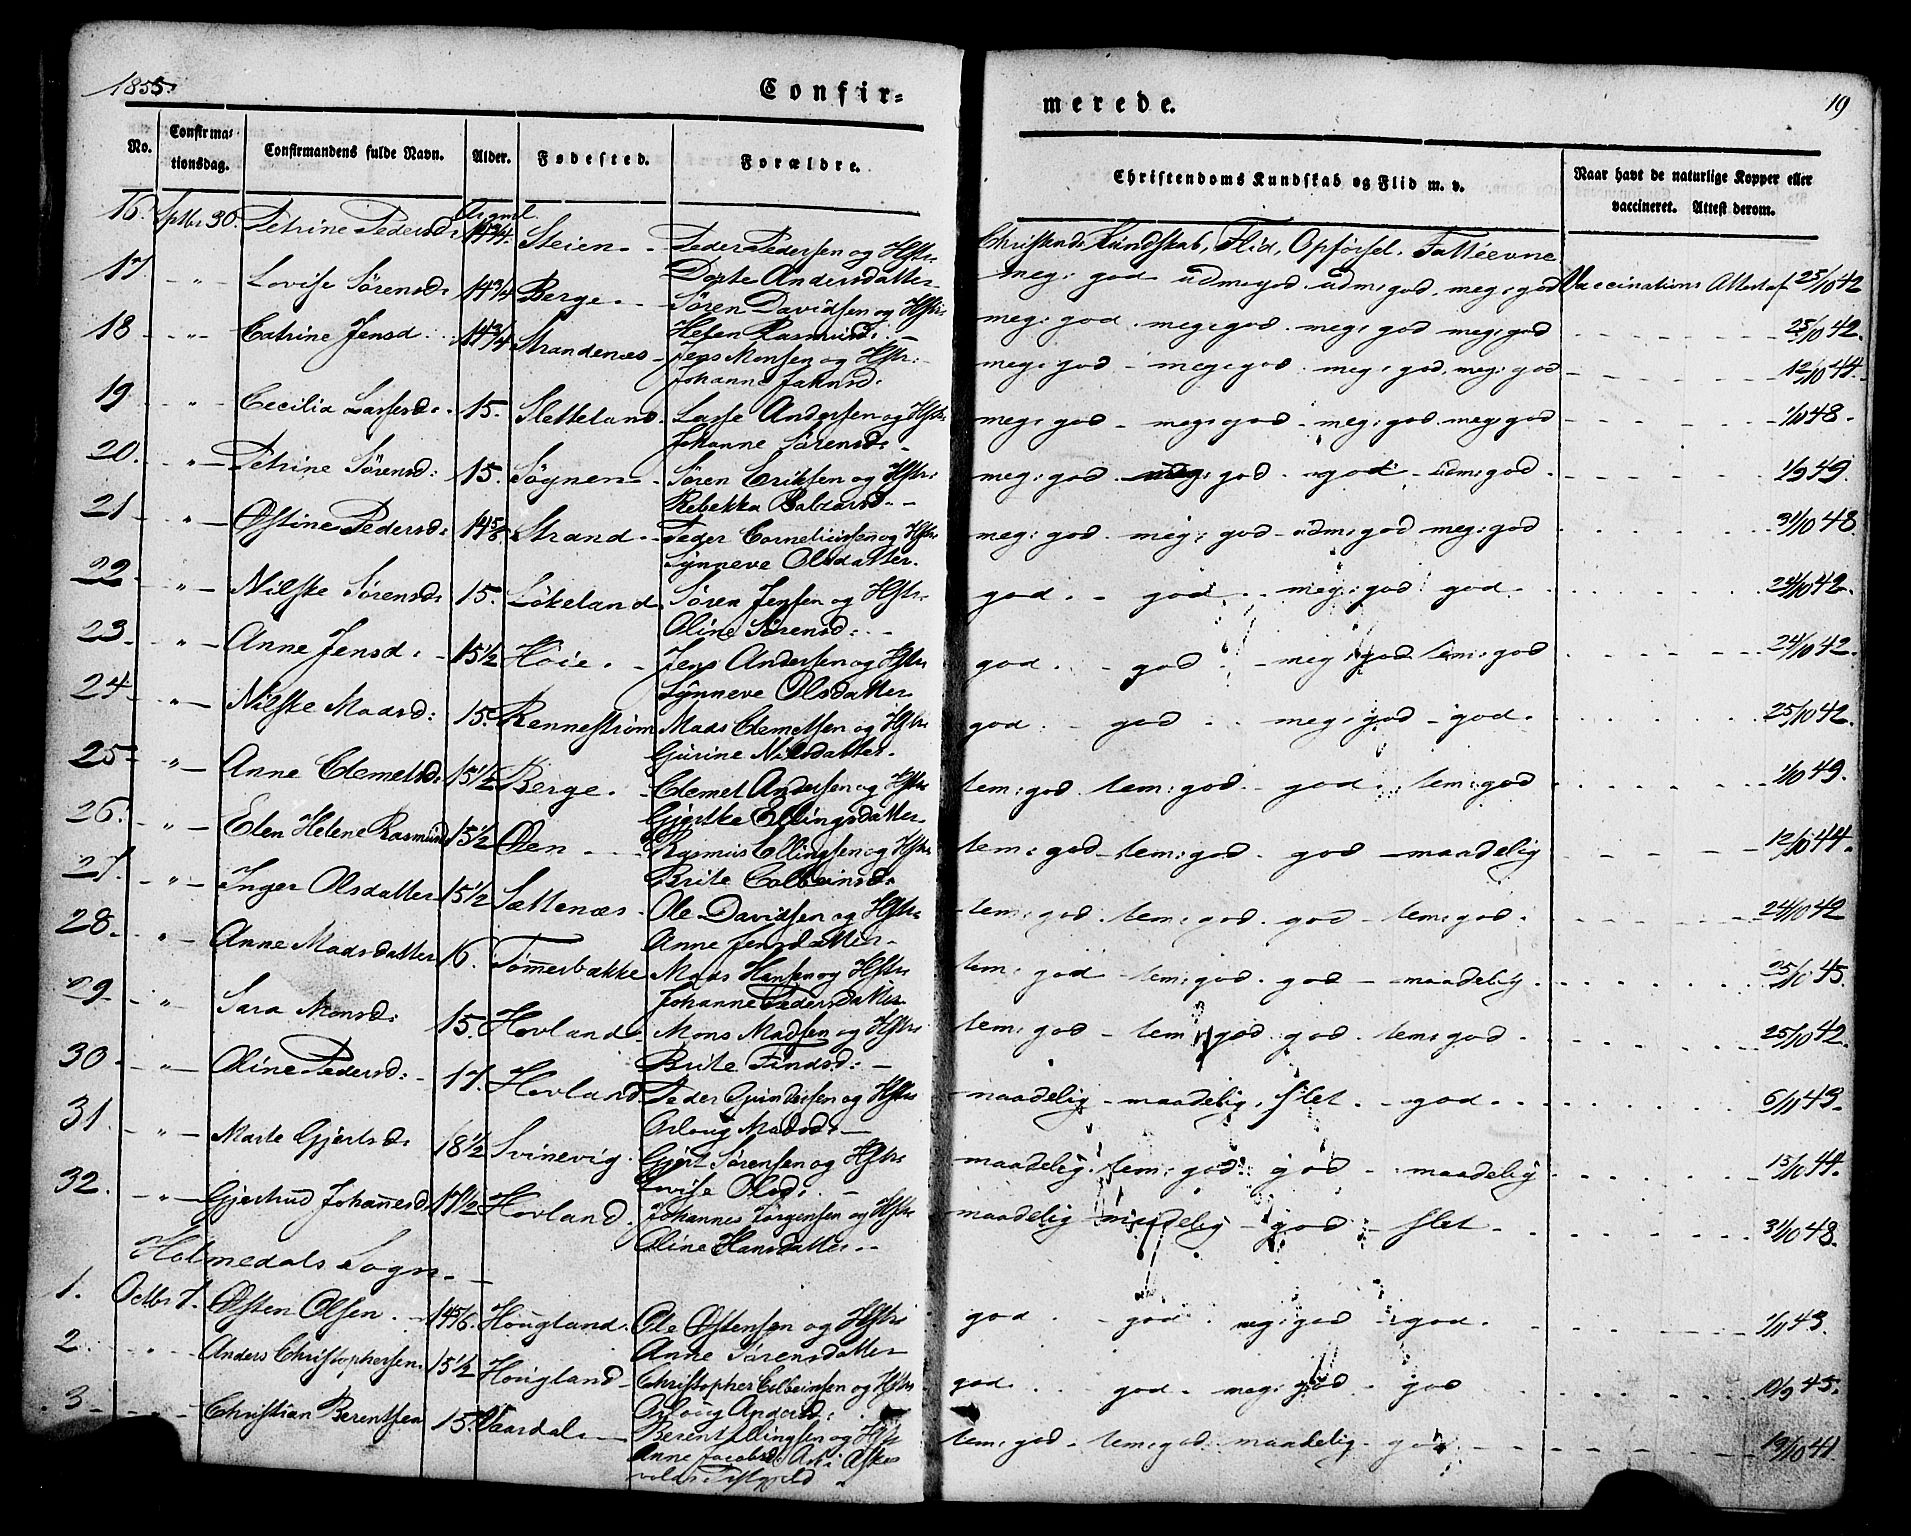 1855.
Confir-
merede.
19
No.
Confirma-
tionsdag.
Confirmandens fulde Navn.
Alder.
Fødested.
Forældre.
Christendoms Kundskab og Flid m. v.
Naar havt de naturlige Kopper eller
vaccineret. Attest derom.
Christends Kundskab, Flid, Opførsel, Fatteevne
16. Sptbr 30. Petrine Pedersd: 14 3/4. Steien Peder Pedersen og Hstr:
Dorte Andersdatter meg: god udm: god udm: god. meg: god Vaccinations Attest af 25/10 42
17 " Lovise Sørensd: 14 3/4 Berge Søren Davidsen og Hstr:
Helen Rasmusd: meg: god. meg: god. meg: god meg: god 25/10 42.
18 " Catrine Jensd: 14 3/4 Strandenæs Jens Monsen og Hstr:
Johanne meg: god meg: god. meg: god, meg: god 12/10 44.
19 " Cecilia Larsesd: 15. Sletteland. Lasse Andersen og Hstr:
Johanne Sørensd: meg: god meg: god meg: god meg: god 1/10 48.
20. " Petrine Sørensd: 15. Sognen Søren Eriksen og Hstr:
Rebekka Balzersd. meg: god. meg: god. god udm: god. 1/9 49.
21 " Østine Pedersd: 14 5/6 Strand Peder Corneliussen og Hstr:
Synneve Olsdatter. meg: god. meg: god udm: god meg: god 31/10 48.
22 " Nilske Sørensd: 15. Løkeland Søren Jensen og Hstr:
Oline Sørensd: god. god meg: god god. 24/10 42.
23 " Anne Jensd: 15 1/2 Høie. Jens Andersen og Hstr:
Synneve Olsdatter god. god meg: god tem: god 24/10 42.
24 " Nilske Madsd: 15. Rennestrøm Mads Clemetsen og Hstr:
Gurine Nilsdatter. god. god meg: god god. 25/10 42.
25 " Anne Clemetsd: 15 1/2 Berge. Clemet Andersen og Hstr:
Gjertke Ellingsdatter. tem: god. tem: god. god. tem: god 1/10 49.
26. " Elen Helene Rasmusd 15 1/2 Øen Rasmus Ellingsen og Hstr:
Brite Colbeinsd: tem: god tem: god. god maadelig 12/10 44.
27. " Inger Olsdatter 15 1/2 Sættenæs Ole Davidsen og Hstr:
Anne Jensdatter tem: god. tem: god. god tem: god. 24/10 42
28. " Anne Madsdatter 16. Tømerbakke Mads Hansen og Hstr
Johanne Pedersdatter tem: god tem: god. god maadelig. 25/10 45.
29 " Sara Monsd: 15. Hovland Mons Madsen og Hstr:
Brite Findsd: tem: god tem: god god. tem: god. 25/10 42.
30 " Oline Pedersd: 17. Hovland Peder og Hstr
Arloug Madsd: maadelig maadelig, slet. god. 6/11 43.
31. " Marte Gjertsd: 18 1/2 Svinevig Gjert Sørensen og Hstr:
Lovise Olsd: maadelig. tem: god god maadelig 15/10 44.
32. " Gjertrud Johannesd: 17 1/2 Hovland. Johannes Jørgensen og Hstr
Oline Hansdatter. maadelig maadelig god slet. 31/10 48.
Holmedals Sogn.
1. Octbr 7. Østen Olsen. 14 5/6. Hougland. Ole Østensen og Hstr:
Anne Sørensdatter god. god. meg: god god. 1/11 43.
2. " Anders Christophersen. 15 1/2 Hougland Christopher Colbeinsen og Hstr
Arloug Andersd: god. god. meg: god god 10/9 45.
3 " Christian Berentsen 15. Vaardal. Berent Ellingsen og Hstr
Anne Jacobsd: Askevolds Præstegjeld tem: god. tem: god maadelig. god 19/10 41.